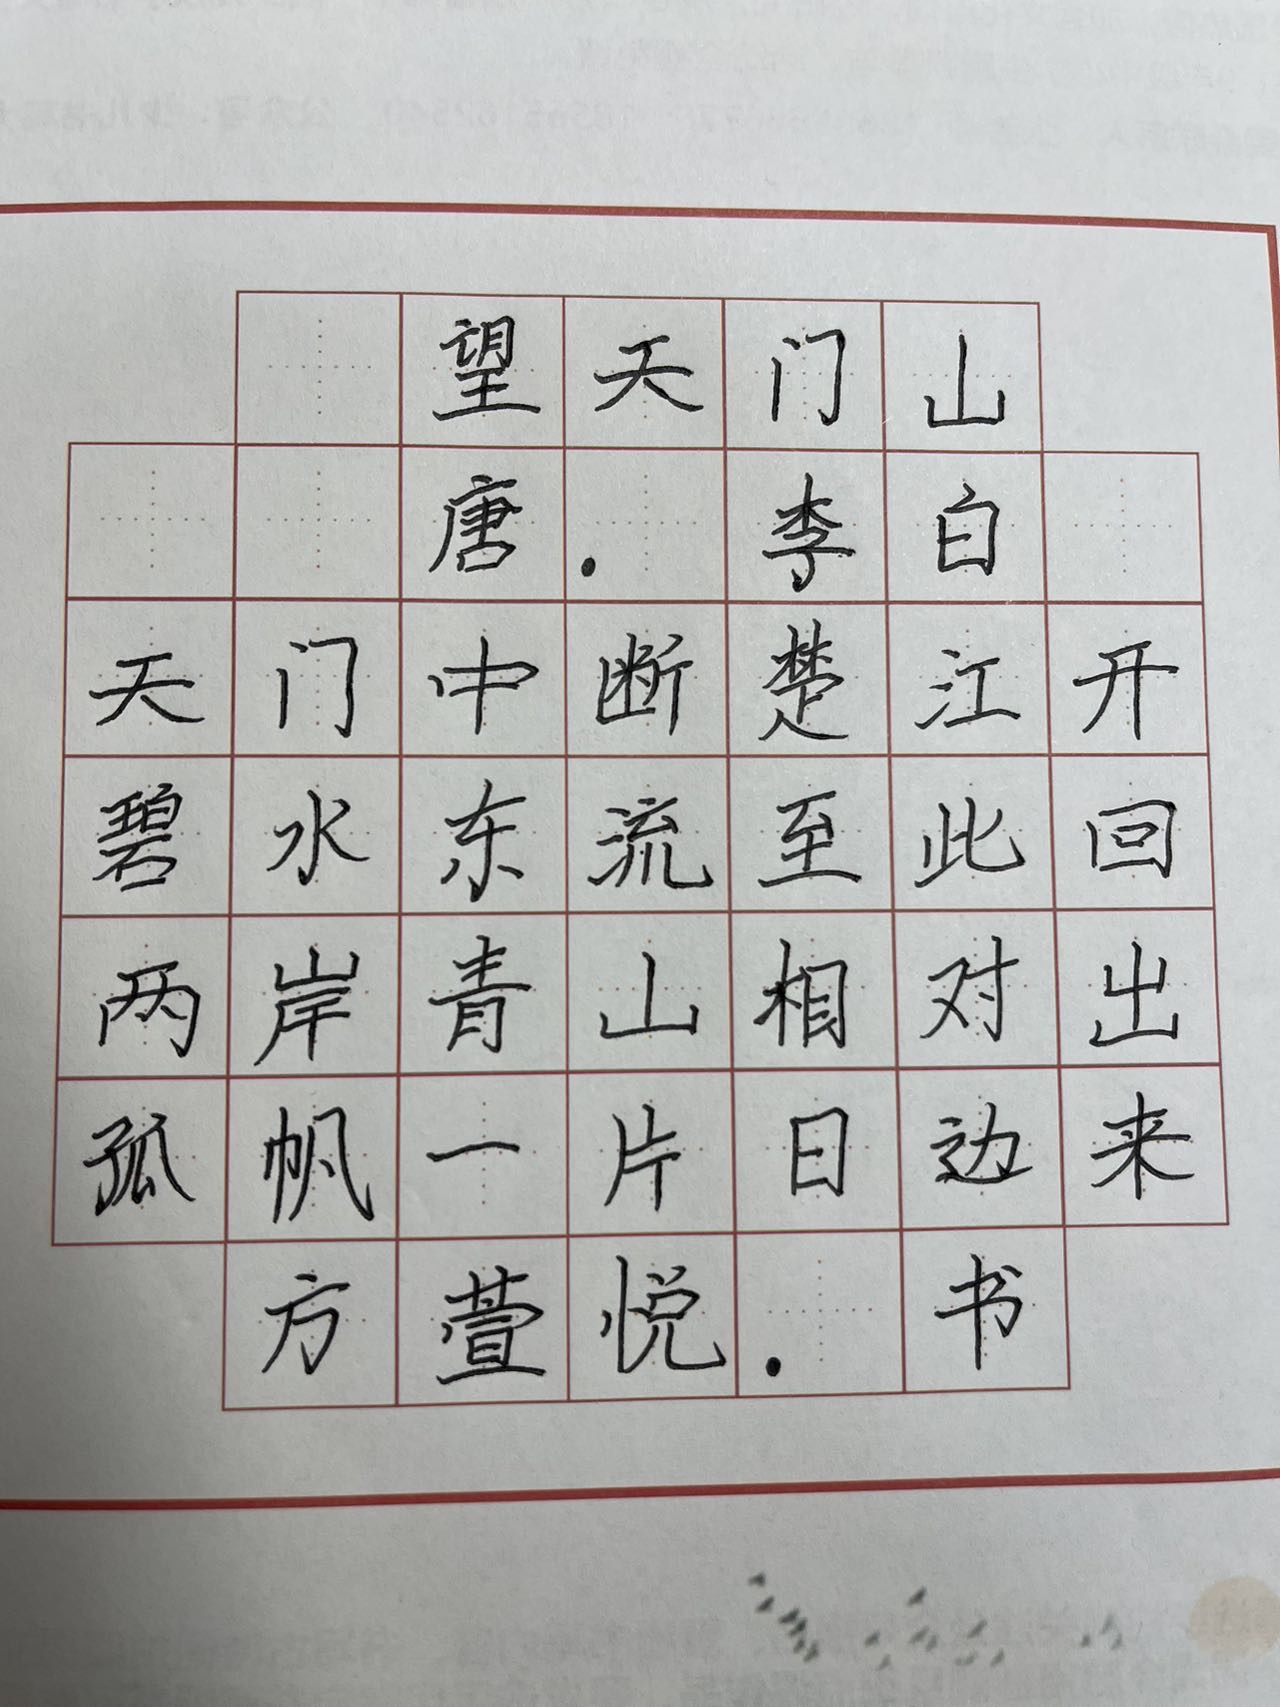 望天门山
唐.李白
天门中断楚江开
碧水东流至此回
两岸青山相对出
孤帆一片日边来
方萱悦.书